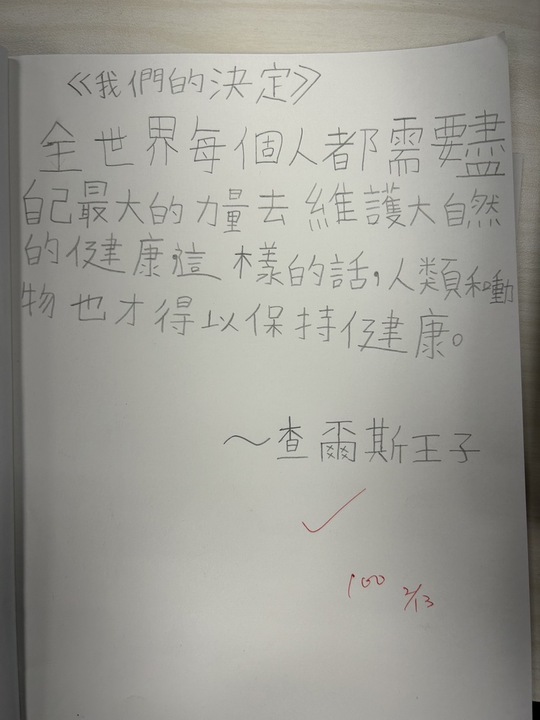 《我們的決定》
全世界每個人都需要盡
自己最大的力量去維護大自然
的健康,這樣的話,人類和動
物也才得以保持健康。
~查爾斯王子
✓
100 2/13